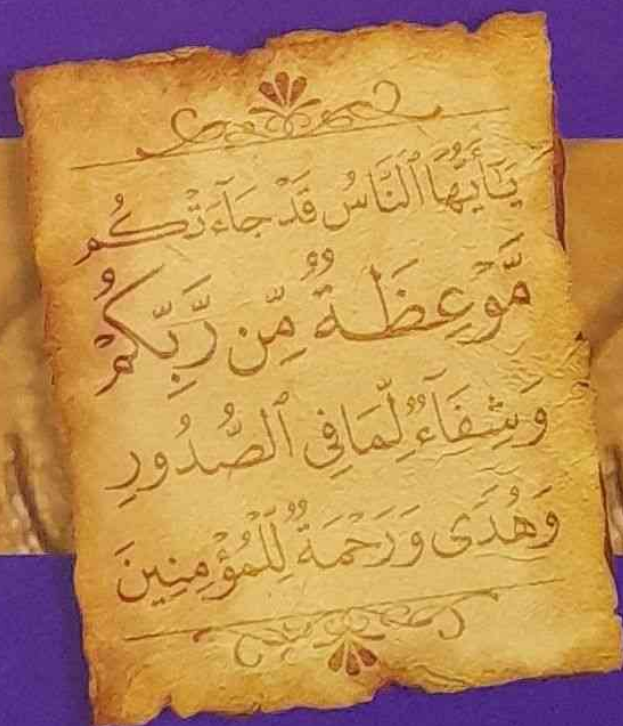 يَـٰٓأَيُّهَا ٱلنَّاسُ قَدۡ جَآءَتۡكُم
مَّوۡعِظَةٞ مِّن رَّبِّكُمۡ
وَشِفَآءٞ لِّمَا فِي ٱلصُّدُورِ
وَهُدٗى وَرَحۡمَةٞ لِّلۡمُؤۡمِنِينَ